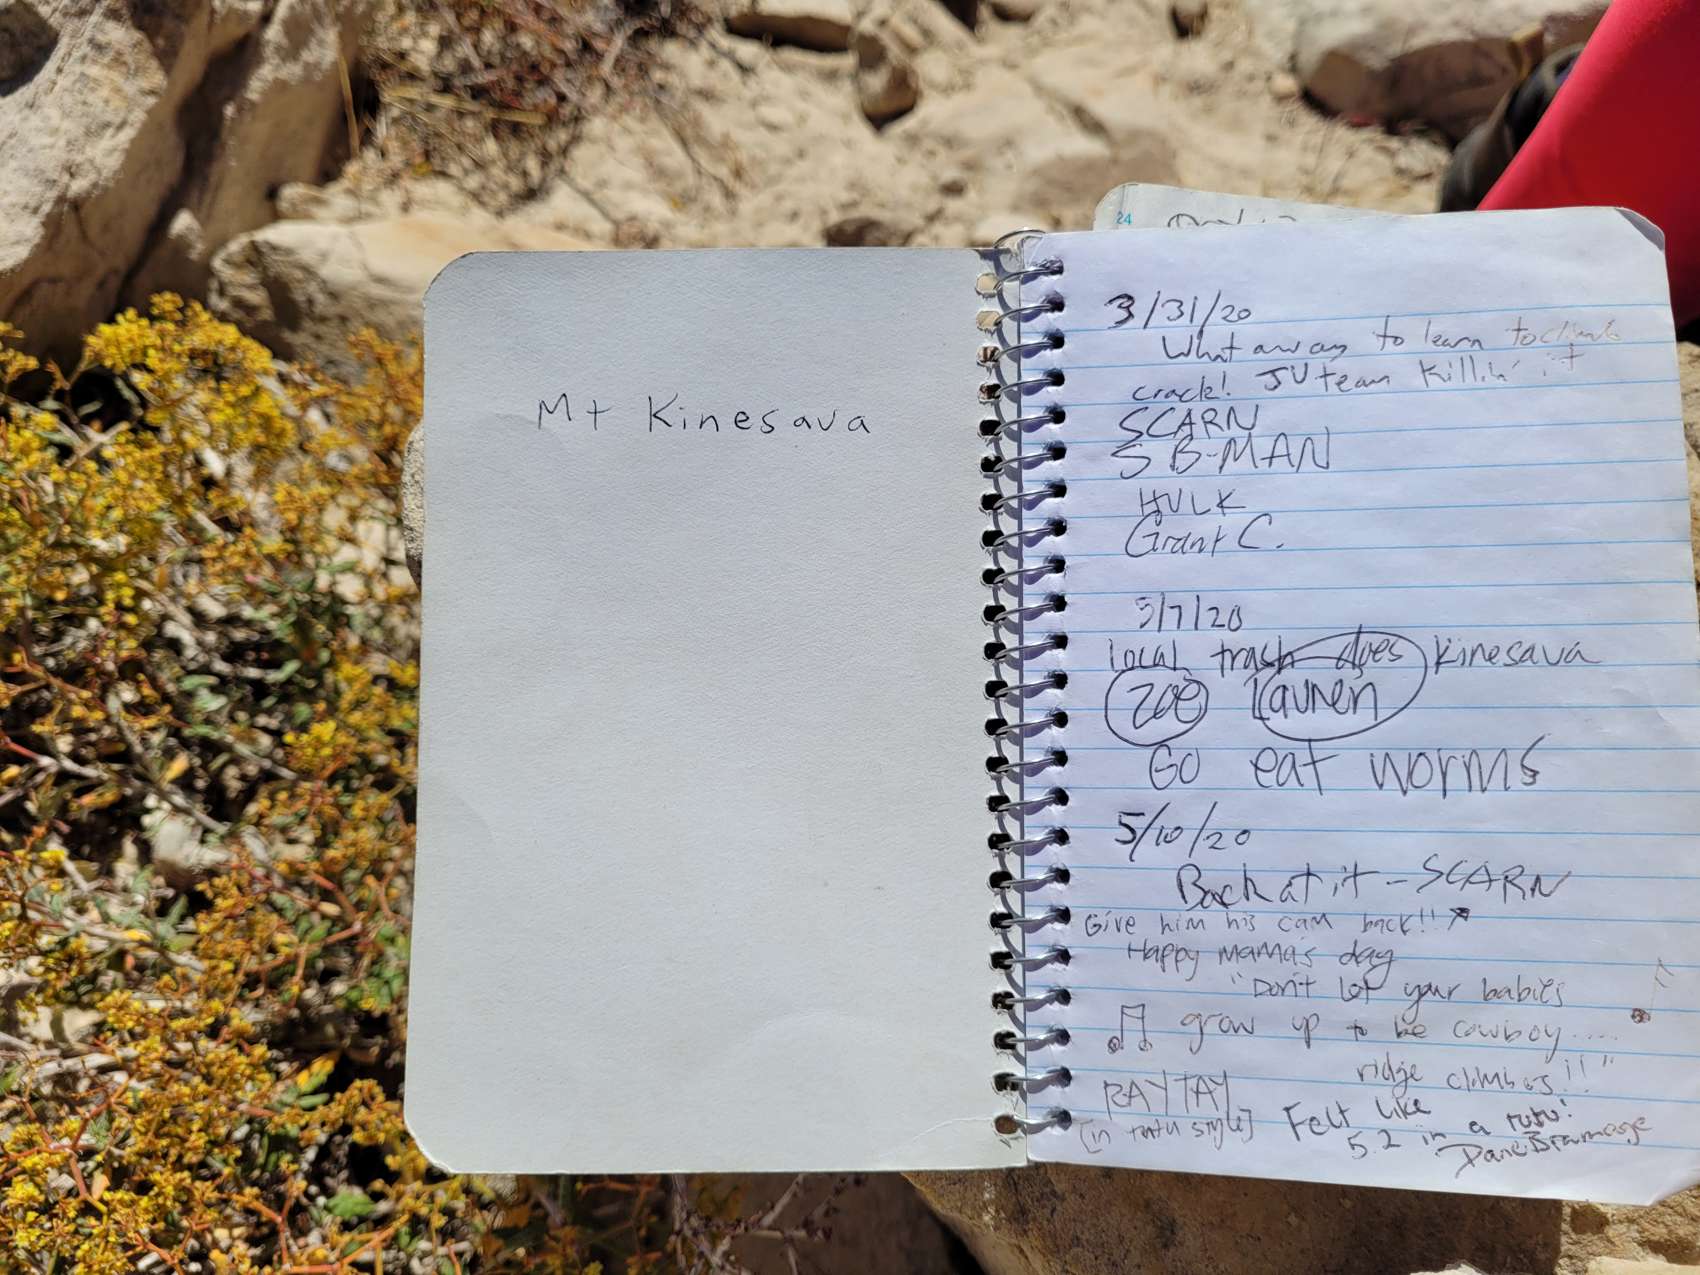 Mt Kinesava
24
3/31/20
What a way to learn to climb
crack! JV team Killin' it
SCARN
SB-MAN
HULK
Grant C.
5/7/20
local trash does Kinesava
Zoë Lauren
Go eat worms
5/10/20
Back at it - SCARN
Give him his cam back!!
Happy mama's day
"Don't let your babies
grow up to be cowboy....
ridge climbers!!"
RAYTAY
[in tutu style]
Felt like
5.2 in a tutu!
Dane